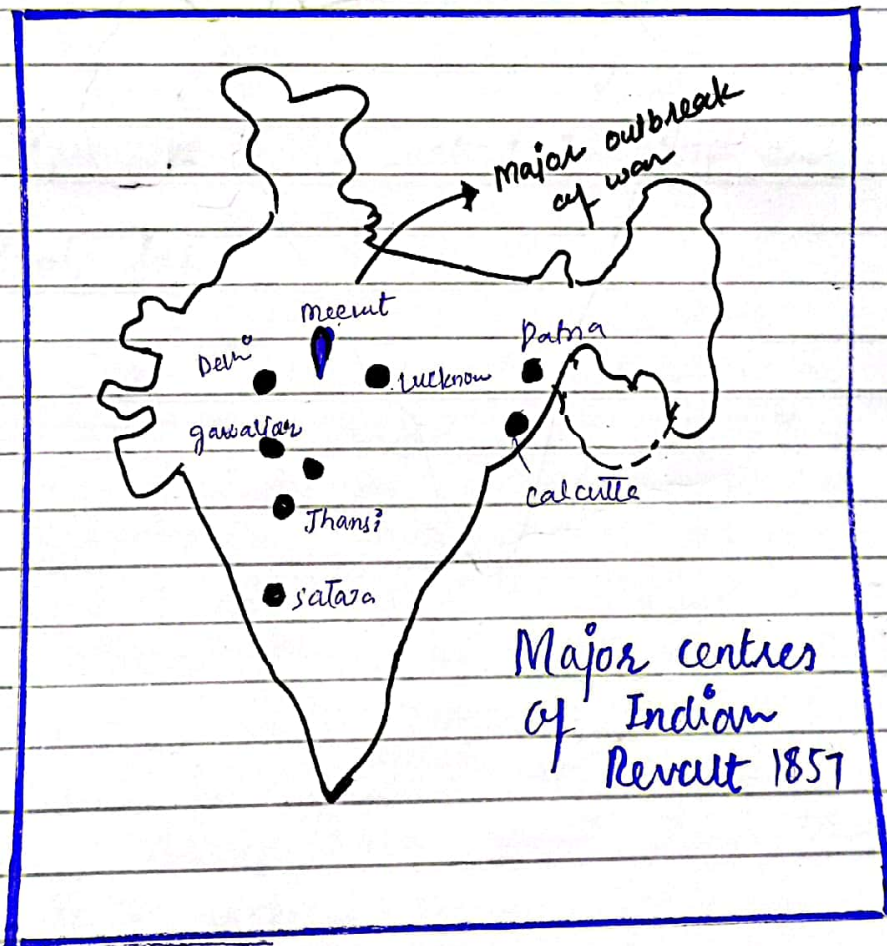 Major outbreak
of war
Meerut
Delhi
Lucknow
Patna
gawaliar
Jhansi
Calcutta
Satara
Major centres
of Indian
Revolt 1857